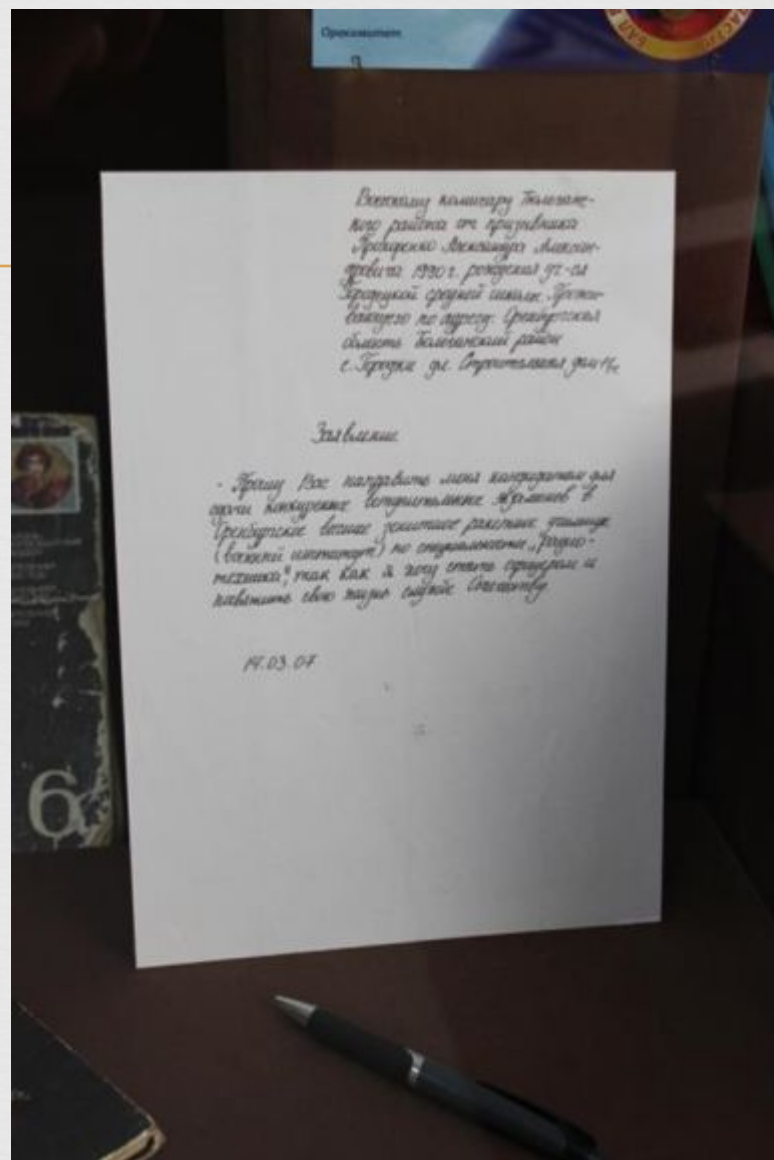 Оргкомитет
Военному комиссару Тюльганс-
кого района от призывника
Прохоренко Александра Алексан-
дровича 1990 г. рождения уч-ся
Городецкой средней школы. Прожи-
вающего по адресу: Оренбургская
область Тюльганский район
с. Городки ул. Строительная дом
Заявление
- Прошу Вас направить меня кандидатом для
сдачи конкурсных вступительных экзаменов в
Оренбургское высшее зенитное ракетное училище
(военный институт) по специальности „Радио-
техника", так как я хочу стать офицером и
посвятить свою жизнь службе Отечеству.
14.03.07
6